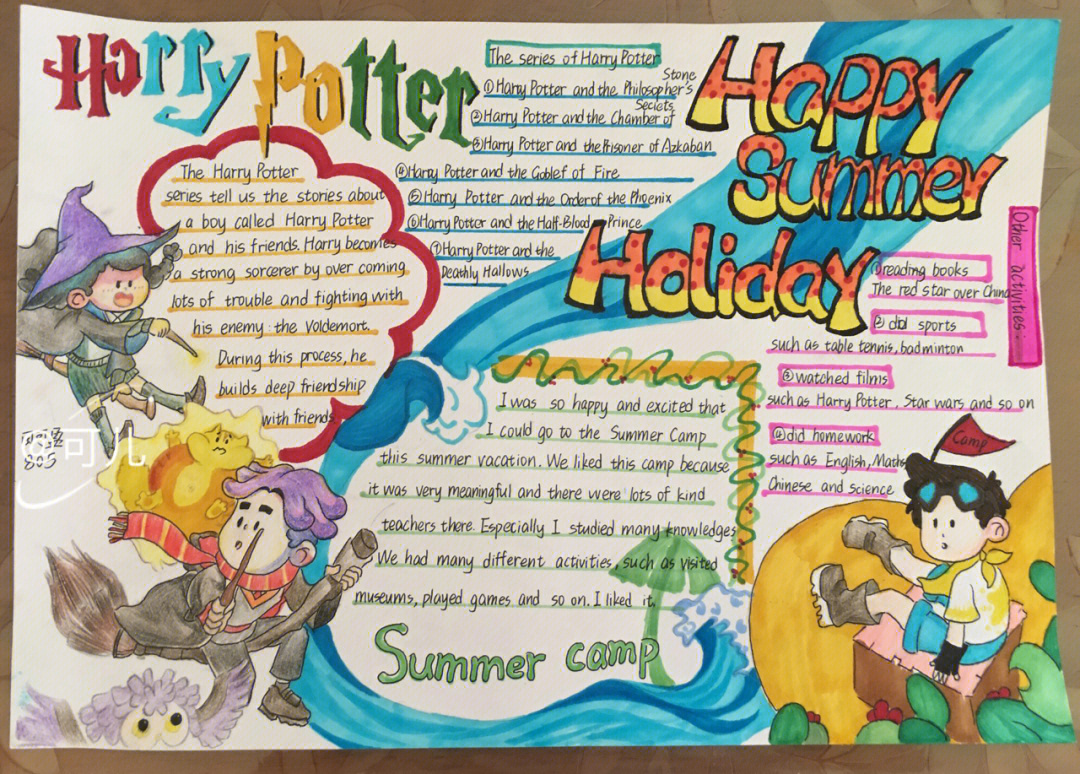 Harry Potter
The Harry Potter
series tell us the stories about
a boy called Harry Potter
and his friends. Harry becomes
a strong sorcerer by over coming
lots of trouble and fighting with
his enemy the Voldemort.
During this process, he
builds deep friendship
with friends.
The series of Harry Potter
①Harry Potter and the Philosopher's
Stone
②Harry Potter and the Chamber of
Seciets
③Harry Potter and the Prisoner of Azkaban
④Harry Potter and the Goblef of Fire
⑤Harry Potter and the Order of the Phoenix
⑥Harry Potter and the Half-Blood Prince
⑦Harry Potter and the
Deathly Hallows
Happy
Summer
Holiday
Other activities:
①reading books
The red star over China
② did sports
such as table tennis, badminton
③watched films
such as Harry Potter. Star wars and so on
④did homework
such as English, Maths
Chinese and science
I was so happy and excited that
I could go to the Summer Camp
this summer vacation. We liked this camp because
it was very meaningful and there were lots of kind
teachers there. Especially I studied many knowledges
We had many different activities, such as visited
museums, played games and so on. I liked it.
Summer camp
Camp
@可儿
805